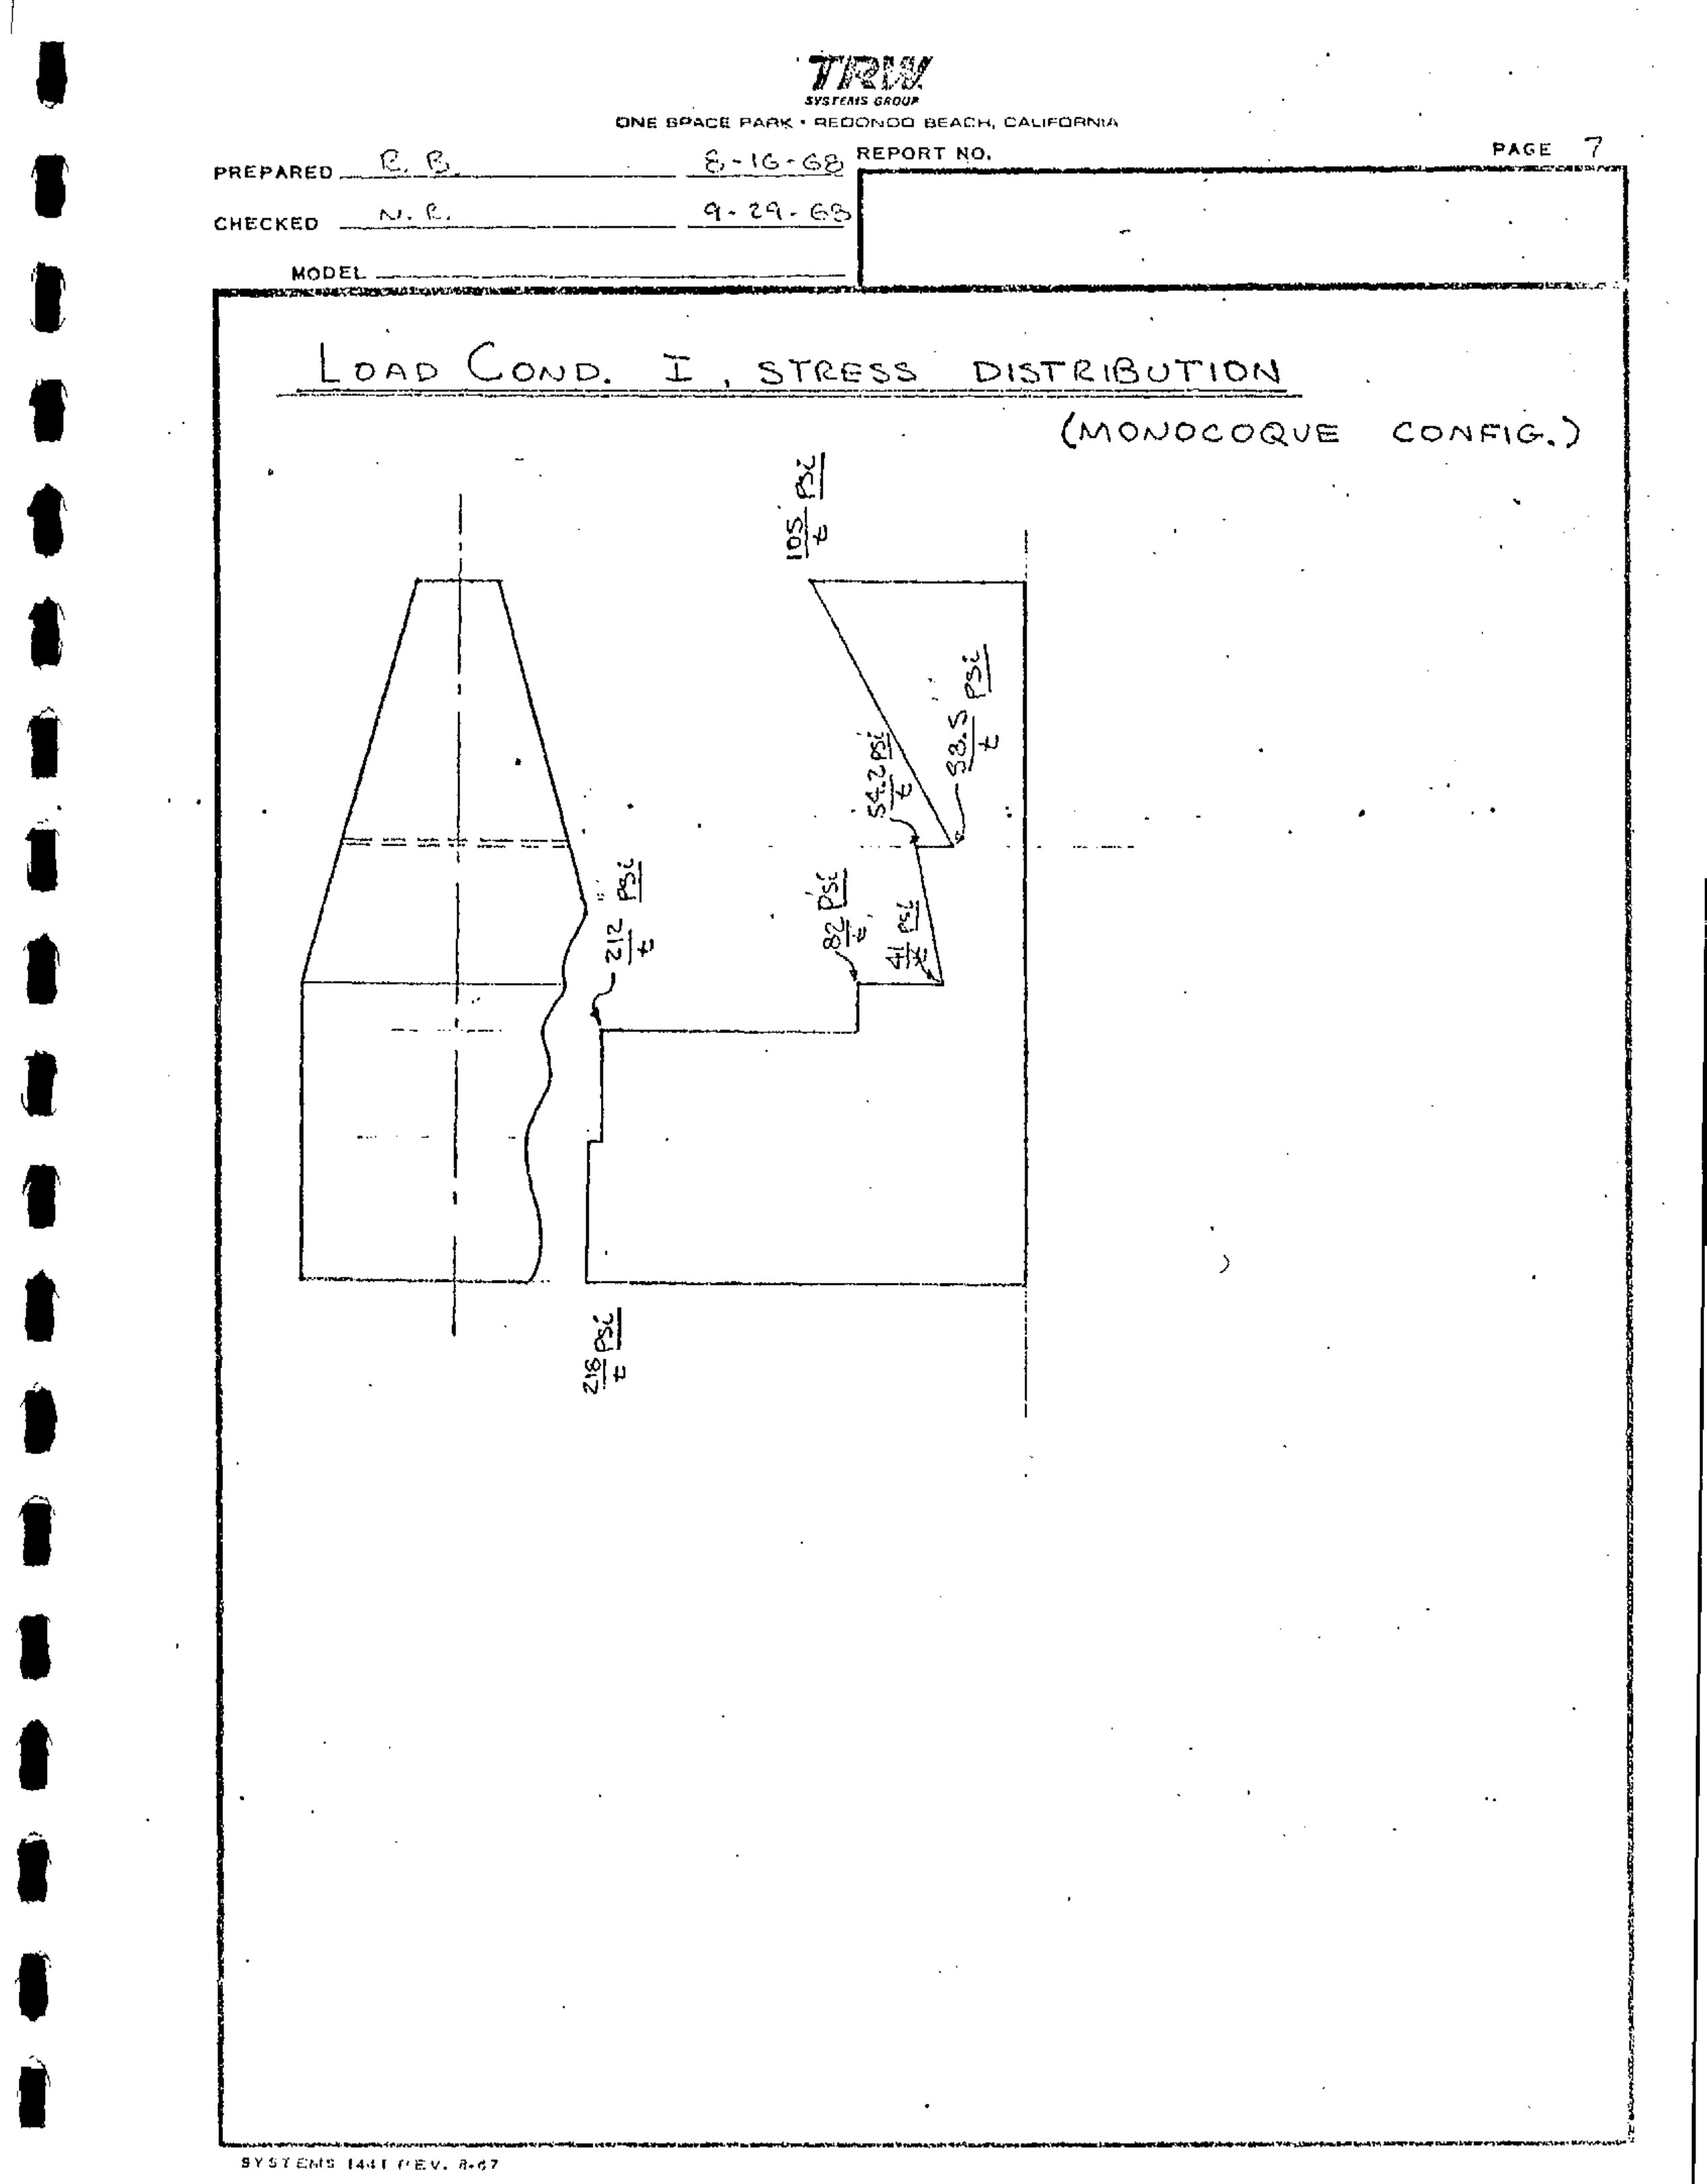 TRW
SYSTEMS GROUP
ONE SPACE PARK • REDONDO BEACH, CALIFORNIA
PREPARED R. B. 8-16-68 REPORT NO. PAGE 7
CHECKED N. R. 9-29-68
MODEL
LOAD COND. I, STRESS DISTRIBUTION
(MONOCOQUE CONFIG.)
105/t psi
38.5/t psi
54.2/t psi
82/t psi
41/t psi
212/t psi
218/t psi
SYSTEMS 1441 REV. 8-67